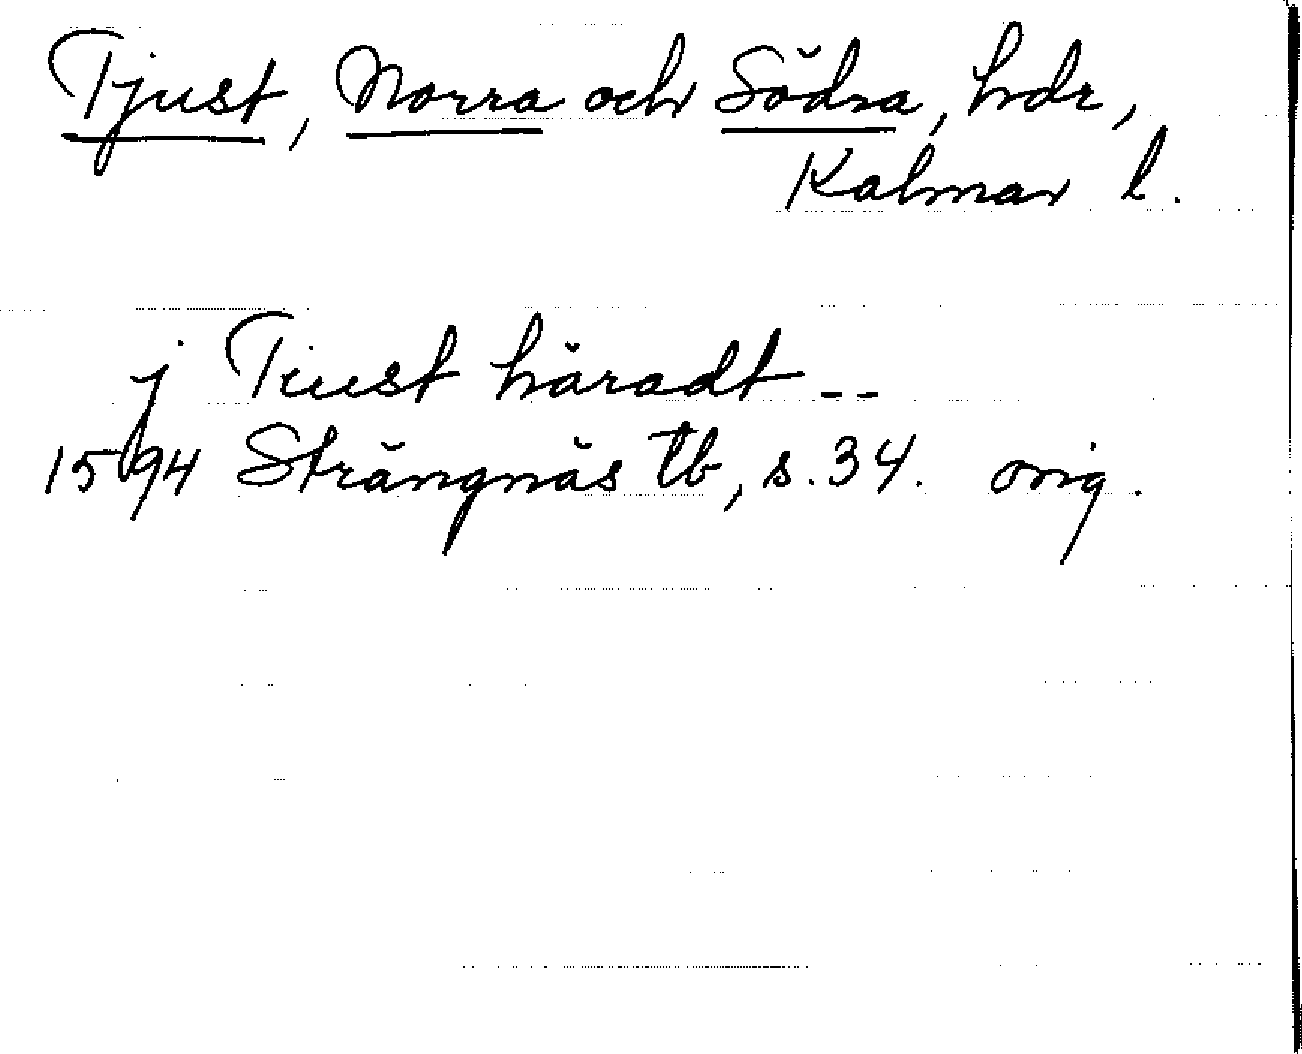 Tjust, Norra och Södra, hdr,
Kalmar l.
j Tiust häradt --
1594 Strängnäs tb, s. 34. orig.